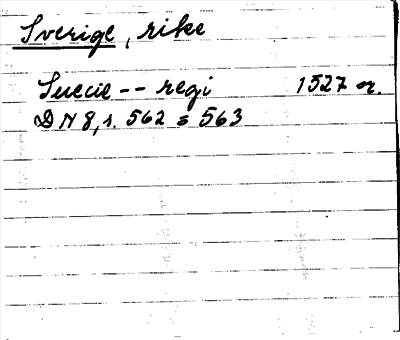 Sverige, rike
Suecie -- regi 1527 or.
DN 8, s. 562 = 563